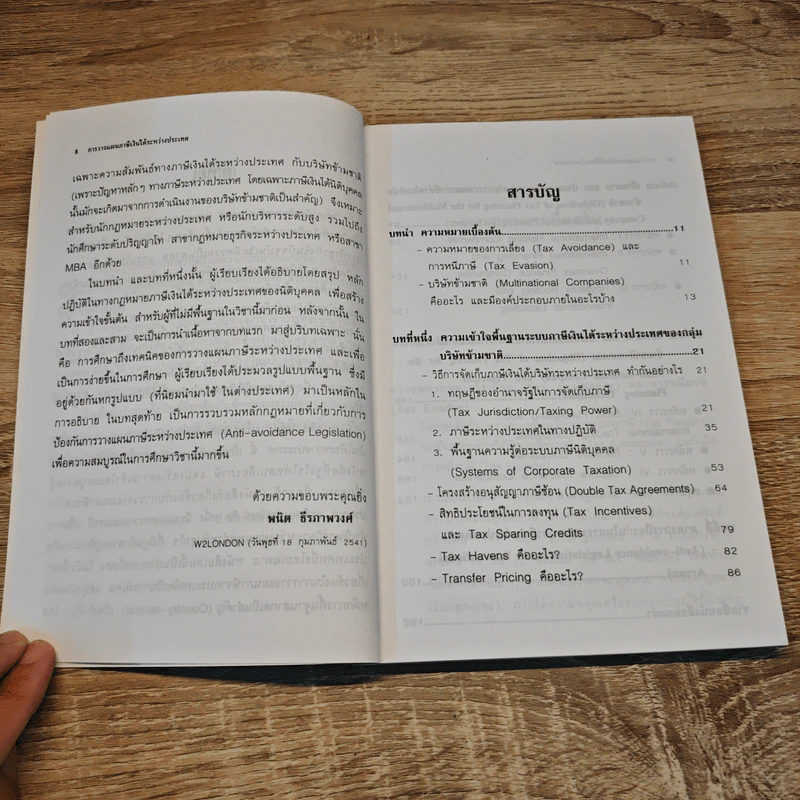 8 การวางแผนภาษีเงินได้ระหว่างประเทศ
เฉพาะความสัมพันธ์ทางภาษีเงินได้ระหว่างประเทศ กับบริษัทข้ามชาติ
(เพราะปัญหาหลักๆ ทางภาษีระหว่างประเทศ โดยเฉพาะภาษีเงินได้นิติบุคคล
นั้นมักจะเกิดมาจากการดำเนินงานของบริษัทข้ามชาติเป็นสำคัญ) จึงเหมาะ
สำหรับนักกฎหมายระหว่างประเทศ หรือนักบริหารระดับสูง รวมไปถึง
นักศึกษาระดับปริญญาโท สาขากฎหมายธุรกิจระหว่างประเทศ หรือสาขา
MBA อีกด้วย
ในบทนำ และบทที่หนึ่งนั้น ผู้เรียบเรียงได้อธิบายโดยสรุป หลัก
ปฏิบัติในทางกฎหมายภาษีเงินได้ระหว่างประเทศของนิติบุคคล เพื่อสร้าง
ความเข้าใจขั้นต้น สำหรับผู้ที่ไม่มีพื้นฐานในวิชานี้มาก่อน หลังจากนั้น ใน
บทที่สองและสาม จะเป็นการนำเนื้อหาจากบทแรก มาสู่บริบทเฉพาะ นั่น
คือ การศึกษาถึงเทคนิคของการวางแผนภาษีระหว่างประเทศ และเพื่อ
เป็นการง่ายขึ้นในการศึกษา ผู้เรียบเรียงได้ประมวลรูปแบบพื้นฐาน ซึ่งมี
อยู่ด้วยกันหกรูปแบบ (ที่นิยมนำมาใช้ ในต่างประเทศ) มาเป็นหลักใน
การอธิบาย ในบทสุดท้าย เป็นการรวบรวมหลักกฎหมายที่เกี่ยวกับการ
ป้องกันการวางแผนภาษีระหว่างประเทศ (Anti-avoidance Legislation)
เพื่อความสมบูรณ์ในการศึกษาวิชานี้มากขึ้น
ด้วยความขอบพระคุณยิ่ง
พนิต ธีรภาพวงศ์
W2LONDON (วันพุธที่ 18 กุมภาพันธ์ 2541)
สารบัญ
บทนำ ความหมายเบื้องต้น 11
– ความหมายของการเลี่ยง (Tax Avoidance) และ
การหนีภาษี (Tax Evasion) 11
– บริษัทข้ามชาติ (Multinational Companies)
คืออะไร และมีองค์ประกอบภายในอะไรบ้าง 13
บทที่หนึ่ง ความเข้าใจพื้นฐานระบบภาษีเงินได้ระหว่างประเทศของกลุ่ม
บริษัทข้ามชาติ 21
– วิธีการจัดเก็บภาษีเงินได้บริษัทระหว่างประเทศ ทำกันอย่างไร 21
1. ทฤษฎีของอำนาจรัฐในการจัดเก็บภาษี
(Tax Jurisdiction/Taxing Power) 21
2. ภาษีระหว่างประเทศในทางปฏิบัติ 35
3. พื้นฐานความรู้ต่อระบบภาษีนิติบุคคล
(Systems of Corporate Taxation) 53
– โครงสร้างอนุสัญญาภาษีซ้อน (Double Tax Agreements) 64
– สิทธิประโยชน์ในการลงทุน (Tax Incentives)
และ Tax Sparing Credits 79
– Tax Havens คืออะไร? 82
– Transfer Pricing คืออะไร? 86